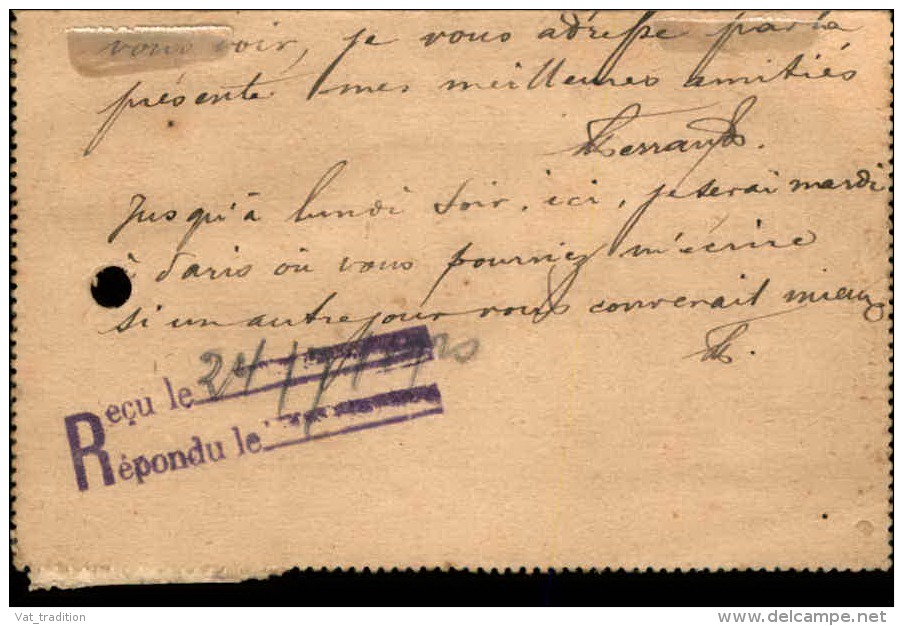 vous voir, je vous adresse par la
présente mes meilleures amitiés
Jusqu'à lundi soir, ici, je serai mardi
à Paris où vous pourriez m'écrire
si un autre jour vous convenait mieux
Reçu le 24/7/
Répondu le
Vat_tradition
www.delcampe.net